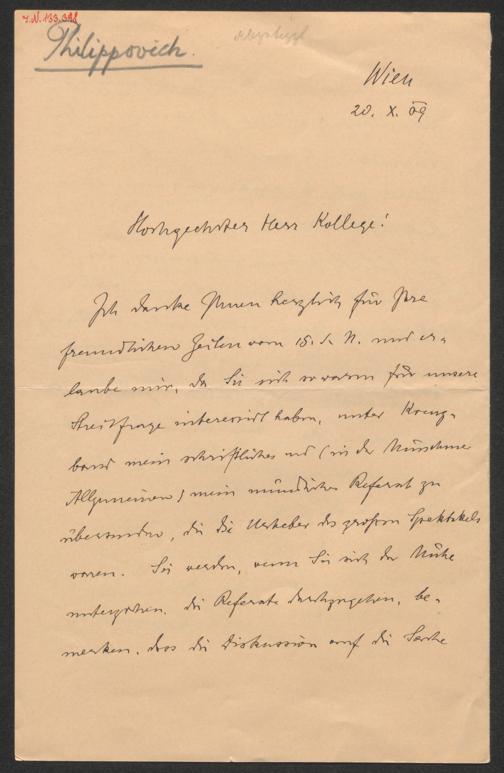 Philippovich.
Wien
20. X. 09
Hochgeehrter Herr Kollege!
Ich danke Ihnen herzlich für Ihre
freundlichen Zeilen vom 18. d. M. und er-
laube mir, da Sie sich so warm für unsere
Streitfrage interessirt haben, unter Kreuz-
band mein schriftliches und (in der Münchner
Allgemeinen) mein mündliches Referat zu
übersenden, die die Urheber des großen Spektakels
waren. Sie werden, wenn Sie sich der Mühe
unterziehen, die Referate durchzugehen, be-
merken, dass die Diskussion auf die Sache